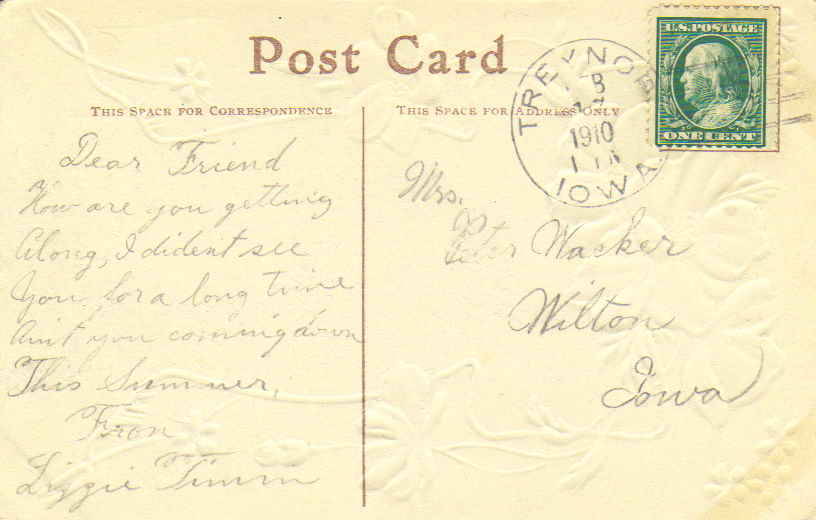 Post Card
THIS SPACE FOR CORRESPONDENCE
THIS SPACE FOR ADDRESS ONLY
U.S. POSTAGE
ONE CENT
TREYNOR
1910
IOWA
Dear Friend
How are you getting
Along, I dident see
You for a long time
Aint you coming down
This Summer,
From
Lizzie Timm
Mrs.
Peter Wacker
Wilton
Iowa